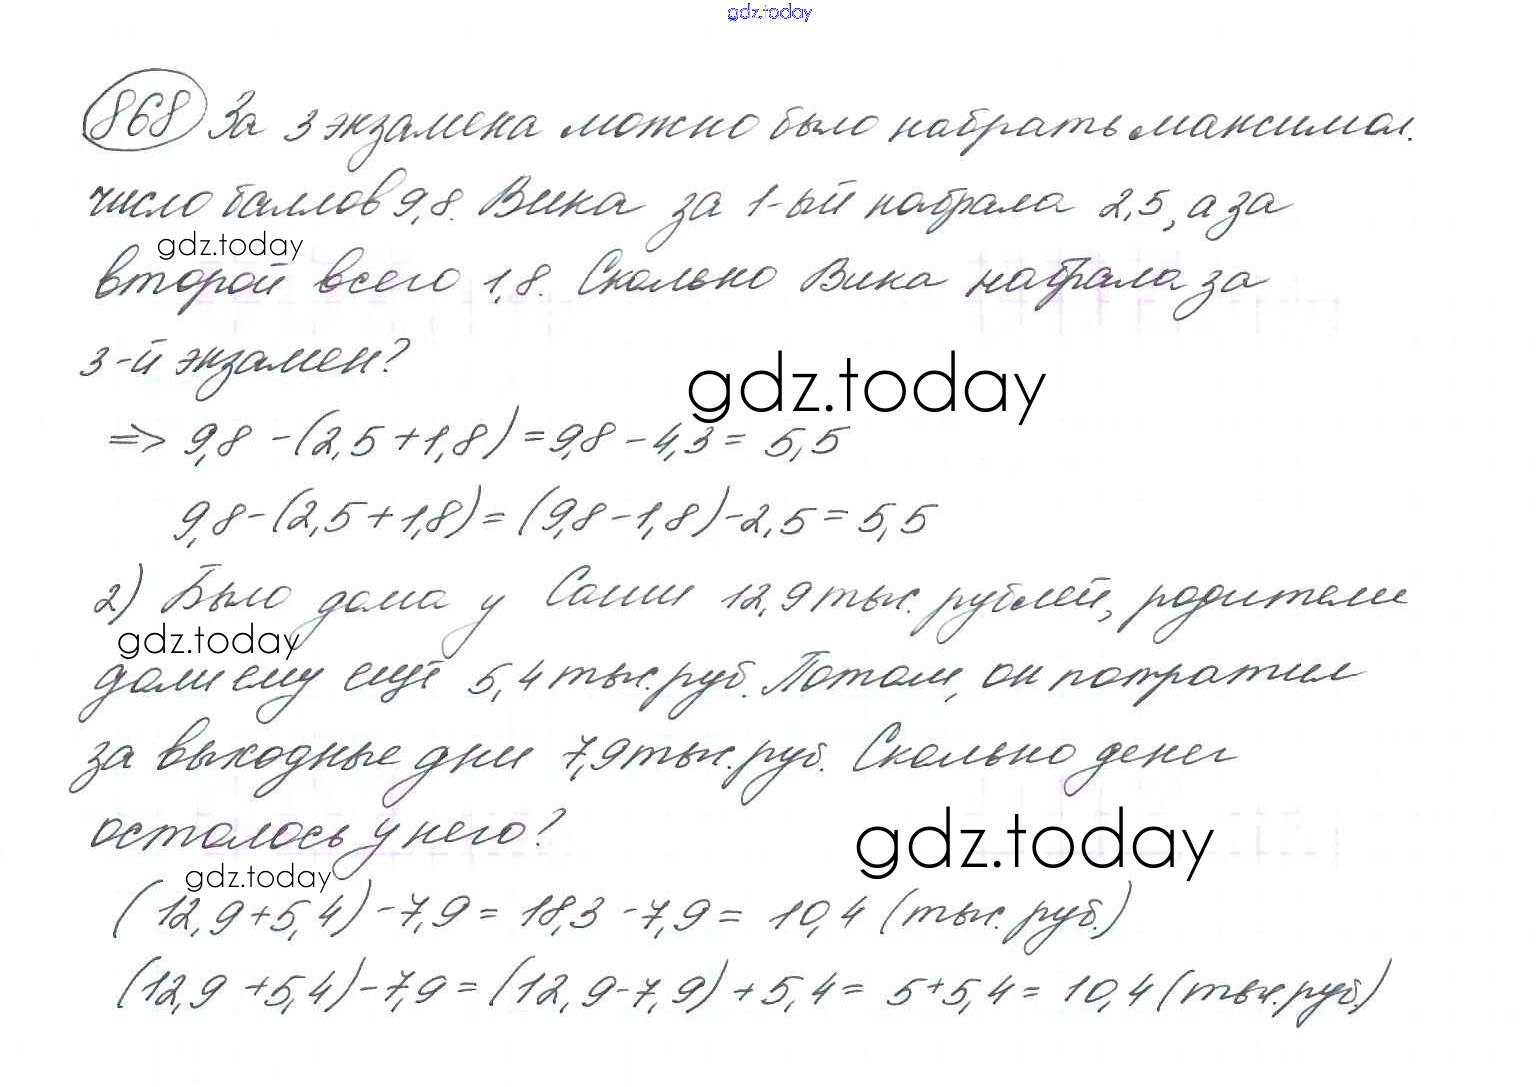 gdz.today
868 За 3 экзамена можно было набрать максимал.
число баллов 9,8. Вика за 1-ый набрала 2,5, а за
gdz.today
второй всего 1,8. Сколько Вика набрала за
3-й экзамен?
gdz.today
=> 9,8 - (2,5 + 1,8) = 9,8 - 4,3 = 5,5
9,8 - (2,5 + 1,8) = (9,8 - 1,8) - 2,5 = 5,5
2) Было дома у Саши 12,9 тыс. рублей, родители
gdz.today
дали ему ещё 5,4 тыс. руб. Потом, он потратил
за выходные дни 7,9 тыс. руб. Сколько денег
осталось у него?
gdz.today
gdz.today
(12,9 + 5,4) - 7,9 = 18,3 - 7,9 = 10,4 (тыс. руб.)
(12,9 + 5,4) - 7,9 = (12,9 - 7,9) + 5,4 = 5 + 5,4 = 10,4 (тыс. руб.)